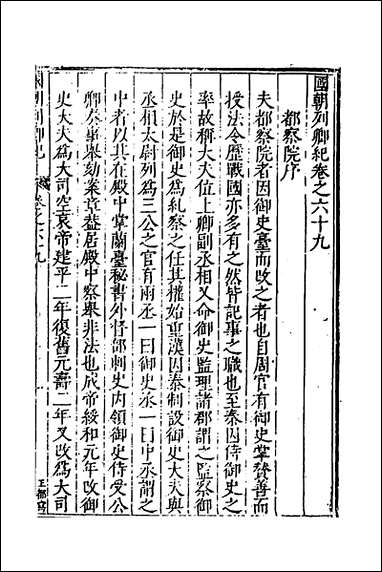 國朝列卿紀卷之六十九
都察院序
夫都察院者因御史臺而改之者也自周官有御史掌贊善而
授法令歷戰國亦多有之然皆記事之職也至秦因侍御史之
率故稱大夫位上卿副丞相又命御史監理諸郡謂之監察御
史於是御史為糾察之任其權始重漢因秦制設御史大夫與
丞相太尉列為三公之官有兩丞一曰御史丞一曰中丞謂之
中者以其在殿中掌蘭臺秘書外督部刺史內領御史侍受公
卿奏事舉劾案章益居殿中察舉非法也成帝綏和元年改御
史大夫為大司空哀帝建平二年復舊元壽二年又改為大司
卷之六九
王都寫